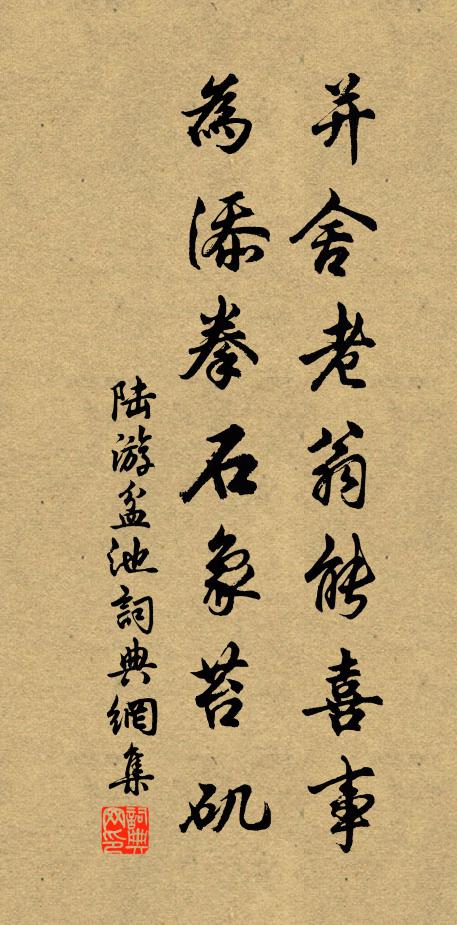 并舍老翁能喜事
為添拳石象苔矶
陆游盆池詞典網集
詞典網印